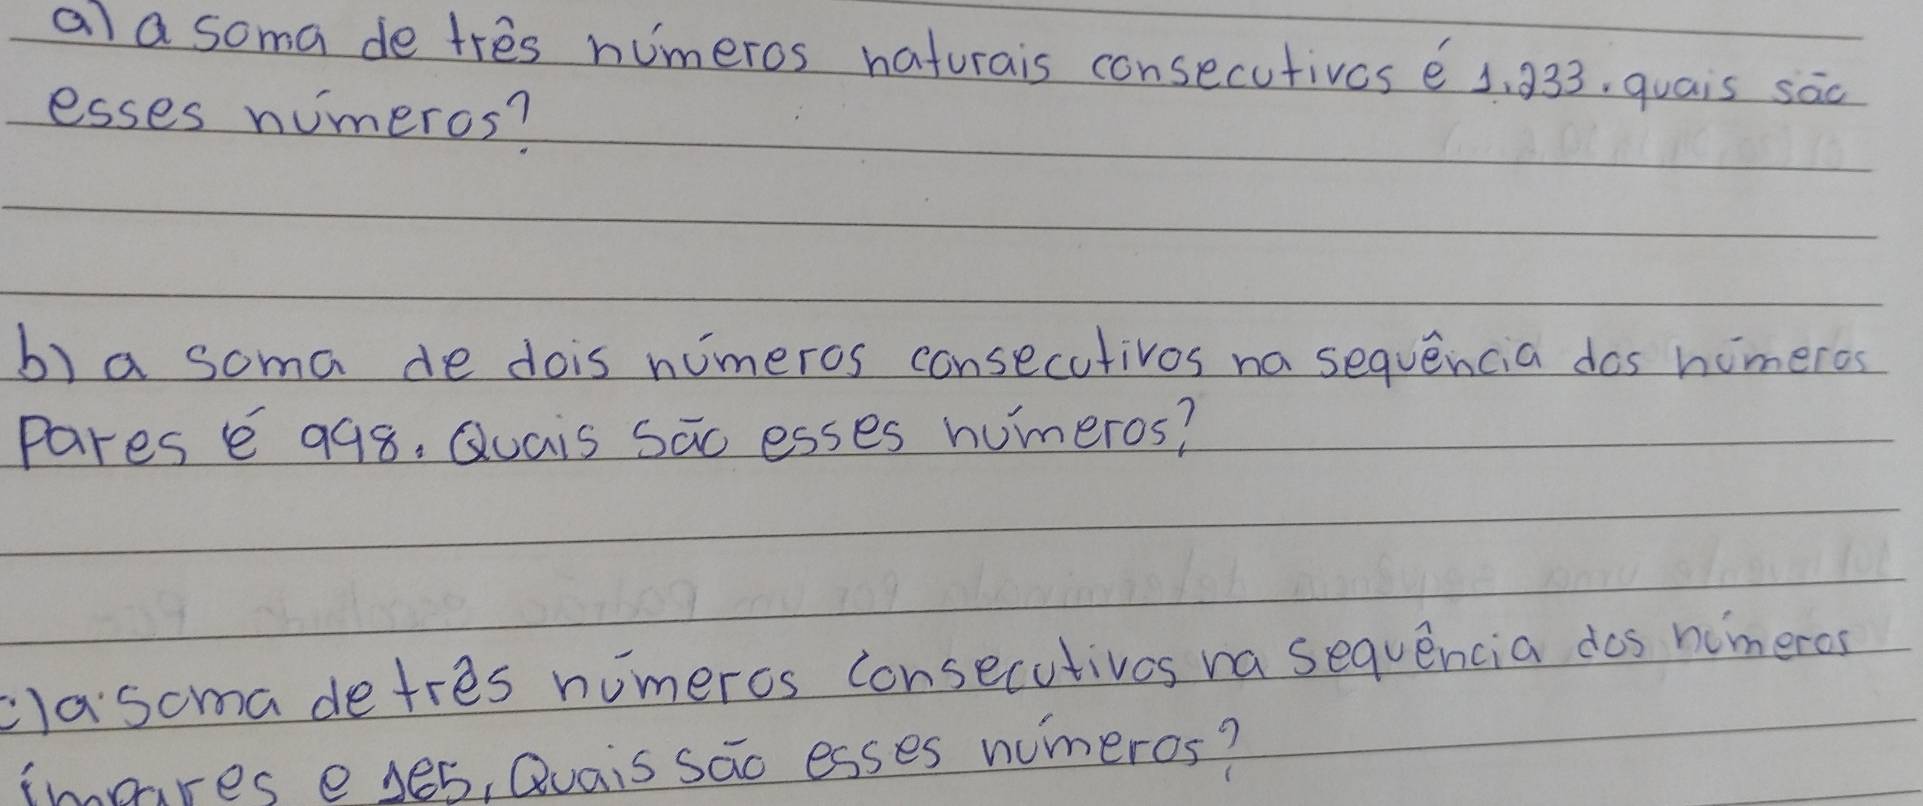 a) a soma de três números naturais consecutivos é 1.233. quais são
esses números?
b) a soma de dois números consecutivos na sequência dos números
Pares é 998. Quais são esses números?
c) a soma de três números consecutivos na sequência dos números
ímpares e 165, Quais são esses números?